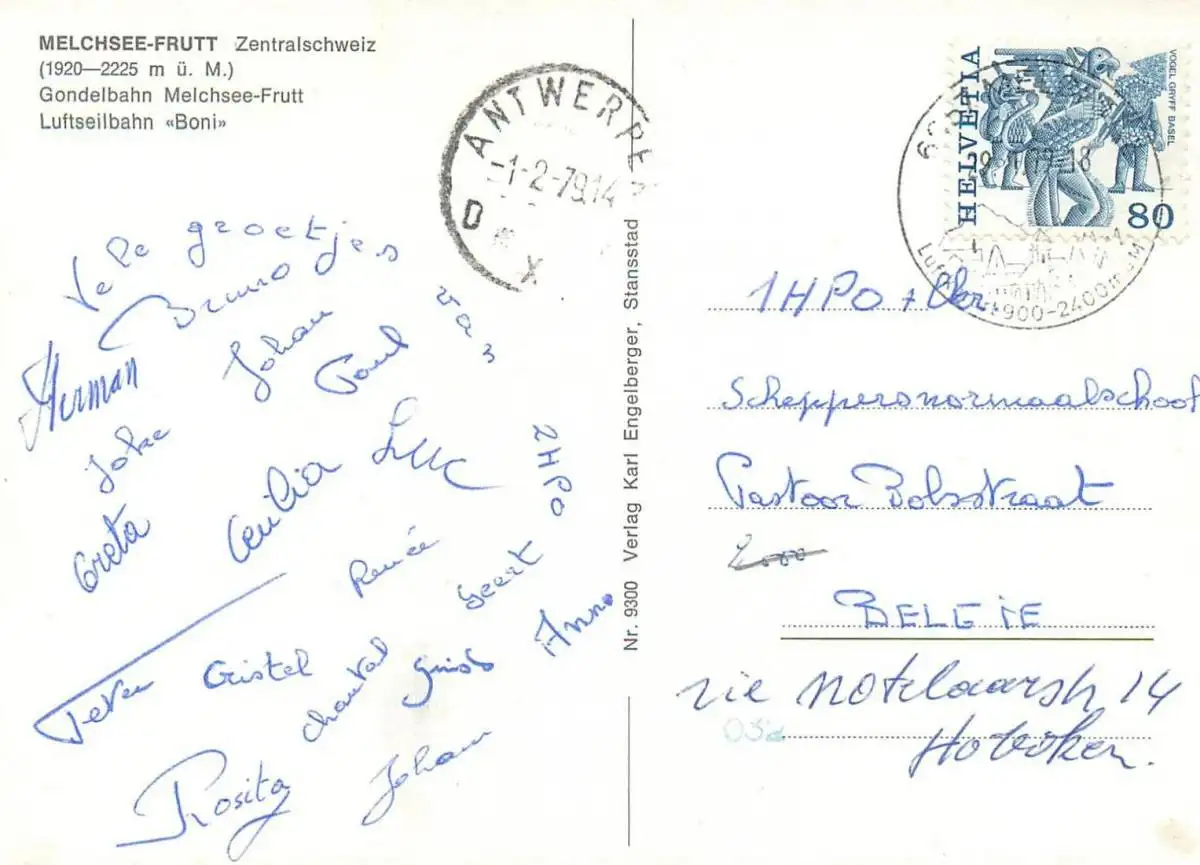 MELCHSEE-FRUTT Zentralschweiz
(1920—2225 m ü. M.)
Gondelbahn Melchsee-Frutt
Luftseilbahn «Boni»
ANTWERPE
-1-2-79.14
D X
HELVETIA
VOGEL GRYFF BASEL
80
1900-2400 m ü M
Vele groetjes van 2HPO
Bruno
Herman
Johan
Paul
Joke
Luc
Greta
Cecilia
Renée
Geert
Anne
Peter
Cristel
Chantal
Guido
Rosita
Johan
Nr. 9300 Verlag Karl Engelberger, Stansstad
1HPO + Chr.
Scheppersnormaalschool
Pastoor Bolsstraat
2000
BELGIE
zie Notelaarsh 14
Hoboken.
03d